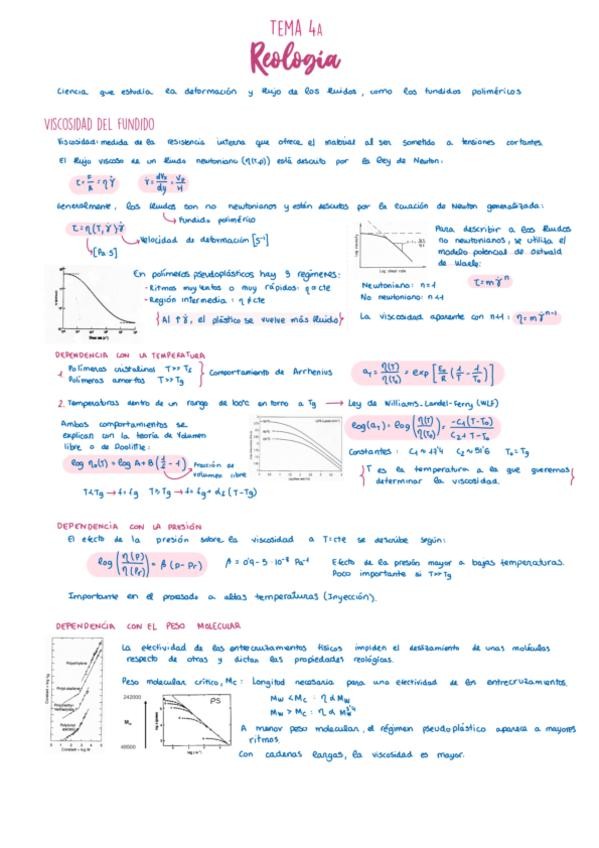 TEMA 4A
Reología
Ciencia que estudia la deformación y flujo de los fluidos, como los fundidos poliméricos
VISCOSIDAD DEL FUNDIDO
Viscosidad: medida de la resistencia interna que ofrece el material al ser sometido a tensiones cortantes.
El flujo viscoso de un fluido newtoniano (η(T,p)) está descrito por la Ley de Newton:
τ = F/A = η γ̇    γ̇ = dVx/dy = V0/H
Generalmente, los fluidos son no newtonianos y están descritos por la ecuación de Newton generalizada:
→ Fundido polimérico
τ = η(T, γ̇) γ̇
→ Velocidad de deformación [s⁻¹]
→ [Pa·s]
Para describir a los fluidos
no newtonianos, se utiliza el
modelo potencial de Ostwald
de Waele:
Log viscosity
Log shear rate
Newtoniano: n=1
No newtoniano: n≠1
τ = m γ̇ⁿ
La viscosidad aparente con n≠1: η = m γ̇ⁿ⁻¹
En polímeros pseudoplásticos hay 3 regímenes:
- Ritmos muy lentos o muy rápidos: η α cte
- Región intermedia: η ≠ cte
{Al ↑ γ̇, el plástico se vuelve más fluido}
DEPENDENCIA CON LA TEMPERATURA
1. Polímeros cristalinos T>> Tf
Polímeros amorfos T>> Tg
} Comportamiento de Arrhenius
aT = η(T)/η(T0) = exp[E0/R (1/T − 1/T0)]
2. Temperaturas dentro de un rango de 100°C en torno a Tg → Ley de Williams-Landel-Ferry (WLF)
Ambos comportamientos se
explican con la teoría de volumen
libre o de Doolitle:
log η0(T) = log A + B (1/f − 1)
→ Fracción de
volumen libre
T<Tg → f = fg    T≥Tg → f = fg + αf (T-Tg)
log(aT) = log (η(T)/η(T0)) = −C1(T−T0)/C2+T−T0
Constantes: C1 ≈ 17'4    C2 ≈ 51'6    T0 = Tg
{T es la temperatura a la que queremos
determinar la viscosidad.}
DEPENDENCIA CON LA PRESIÓN
El efecto de la presión sobre la viscosidad a T=cte se describe según:
log (η(P)/η(Pr)) = β (P-Pr)    β = 0'9-5·10⁻⁸ Pa⁻¹
Efecto de la presión mayor a bajas temperaturas.
Poco importante si T>> Tg
Importante en el procesado a altas temperaturas (Inyección).
DEPENDENCIA CON EL PESO MOLECULAR
La efectividad de los entrecruzamientos físicos impiden el deslizamiento de unas moléculas
respecto de otras y dictan las propiedades reológicas.
Peso molecular crítico, Mc: Longitud necesaria para una efectividad de los entrecruzamientos.
Mw < Mc : η α Mw
Mw > Mc : η α Mw^3'4
242000
Mw
48500
PS
A menor peso molecular, el régimen pseudoplástico aparece a mayores
ritmos.
Con cadenas largas, la viscosidad es mayor.
Constant + log M